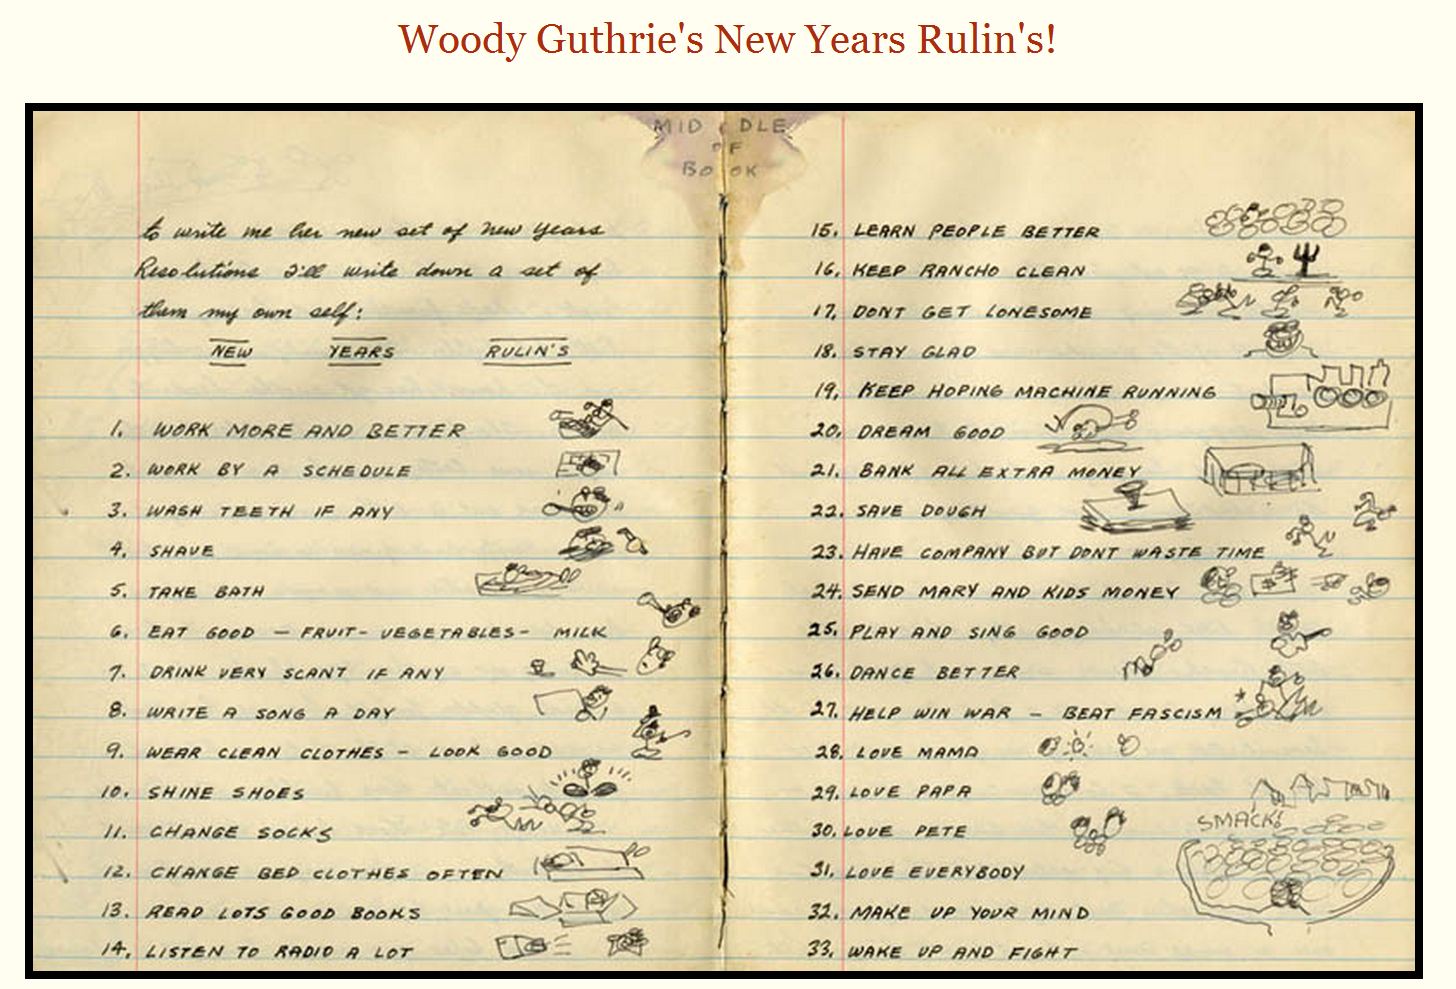 Woody Guthrie's New Years Rulin's!
MIDDLE
OF
BOOK
to write me her new set of New Years
Resolutions I'll write down a set of
them my own self:
NEW YEARS RULIN'S
1. WORK MORE AND BETTER
2. WORK BY A SCHEDULE
3. WASH TEETH IF ANY
4. SHAVE
5. TAKE BATH
6. EAT GOOD — FRUIT - VEGETABLES - MILK
7. DRINK VERY SCANT IF ANY
8. WRITE A SONG A DAY
9. WEAR CLEAN CLOTHES — LOOK GOOD
10. SHINE SHOES
11. CHANGE SOCKS
12. CHANGE BED CLOTHES OFTEN
13. READ LOTS GOOD BOOKS
14. LISTEN TO RADIO A LOT
15. LEARN PEOPLE BETTER
16. KEEP RANCHO CLEAN
17. DONT GET LONESOME
18. STAY GLAD
19. KEEP HOPING MACHINE RUNNING
20. DREAM GOOD
21. BANK ALL EXTRA MONEY
22. SAVE DOUGH
23. HAVE COMPANY BUT DONT WASTE TIME
24. SEND MARY AND KIDS MONEY
25. PLAY AND SING GOOD
26. DANCE BETTER
27. HELP WIN WAR — BEAT FASCISM
28. LOVE MAMA
29. LOVE PAPA
30. LOVE PETE
SMACK!
31. LOVE EVERYBODY
32. MAKE UP YOUR MIND
33. WAKE UP AND FIGHT